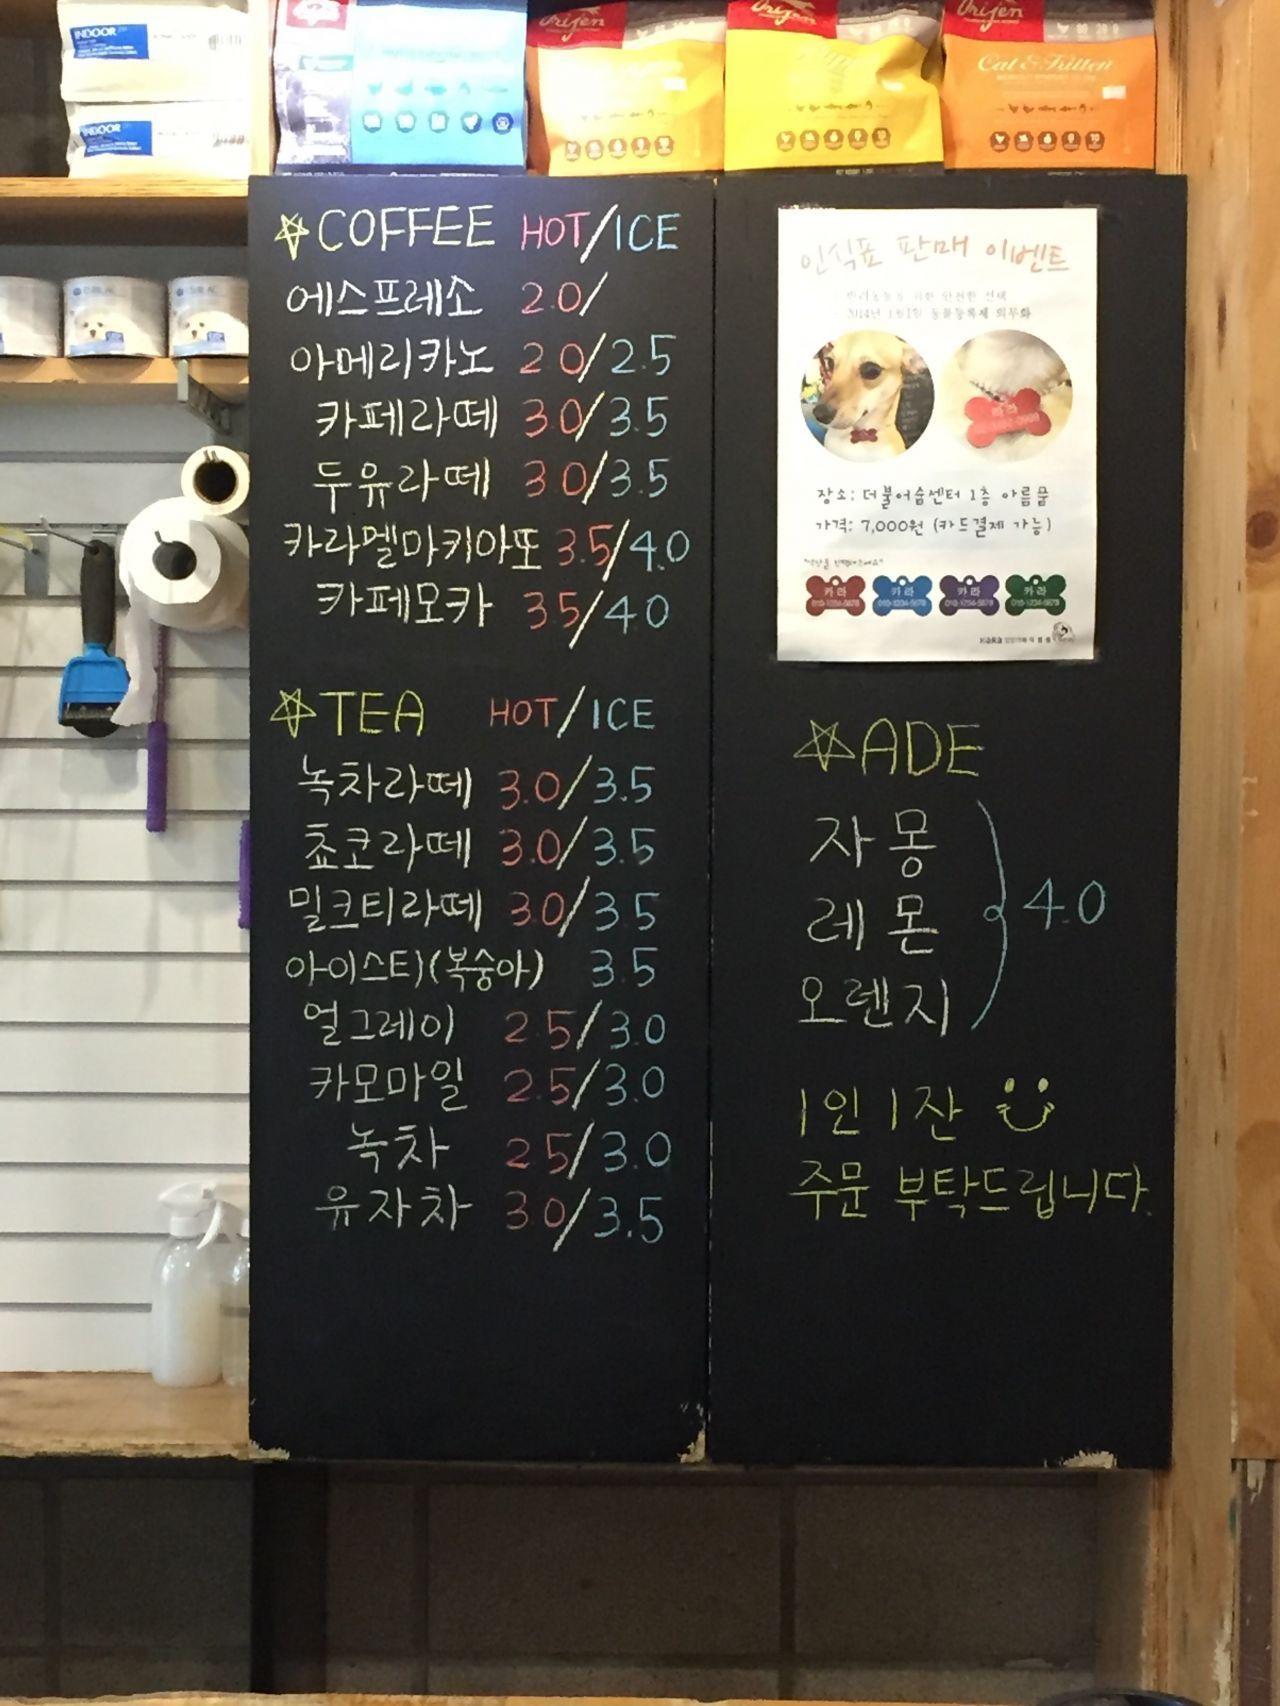 INDOOR
INDOOR
Orijen
Orijen
Orijen
Cat & Kitten
COFFEE HOT/ICE
에스프레소 2.0/
아메리카노 2.0/2.5
카페라떼 3.0/3.5
두유라떼 3.0/3.5
카라멜마키아또 3.5/4.0
카페모카 3.5/4.0
TEA HOT/ICE
녹차라떼 3.0/3.5
쵸코라떼 3.0/3.5
밀크티라떼 3.0/3.5
아이스티(복숭아) 3.5
얼그레이 2.5/3.0
카모마일 2.5/3.0
녹차 2.5/3.0
유자차 3.0/3.5
인식표 판매 이벤트
반려동물을 위한 안전한 선택
2014년 1월1일 동물등록제 의무화
장소: 더불어숨센터 1층 아름품
가격: 7,000원 (카드결제 가능)
카라 카라 카라 카라
010-1234-5678 010-1234-5678 010-1234-5678 010-1234-5678
KARA
ADE
자몽
레몬
오렌지
4.0
1인 1잔
주문 부탁드립니다.